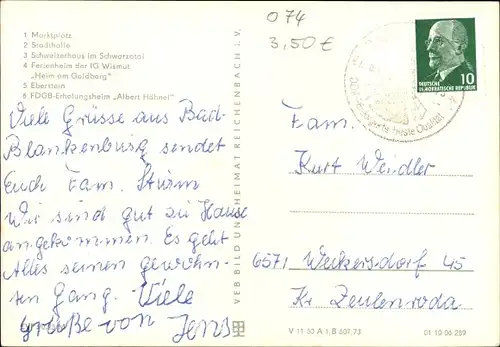 1 Marktplatz
2 Stadthalle
3 Schweizerhaus im Schwarzatal
4 Ferienheim der IG Wismut
„Heim am Goldberg“
5 Eberstein
6 FDGB-Erholungsheim „Albert Hähnel“
Viele Grüsse aus Bad-
Blankenburg sendet
Euch Fam. Sturm
Wir sind gut zu Hause
angekommen. Es geht
Alles seinen gewohn-
ten Gang. Viele
Grüße von Jens
VEB BILD UND HEIMAT REICHENBACH I. V.
074
3,50 €
beste Qualität
10
DEUTSCHE
DEMOKRATISCHE REPUBLIK
Fam.
Kurt Weidler
6571 Weckersdorf 45
Kr Zeulenroda
V 11 50 A 1 B 607/73
01 10 06 289